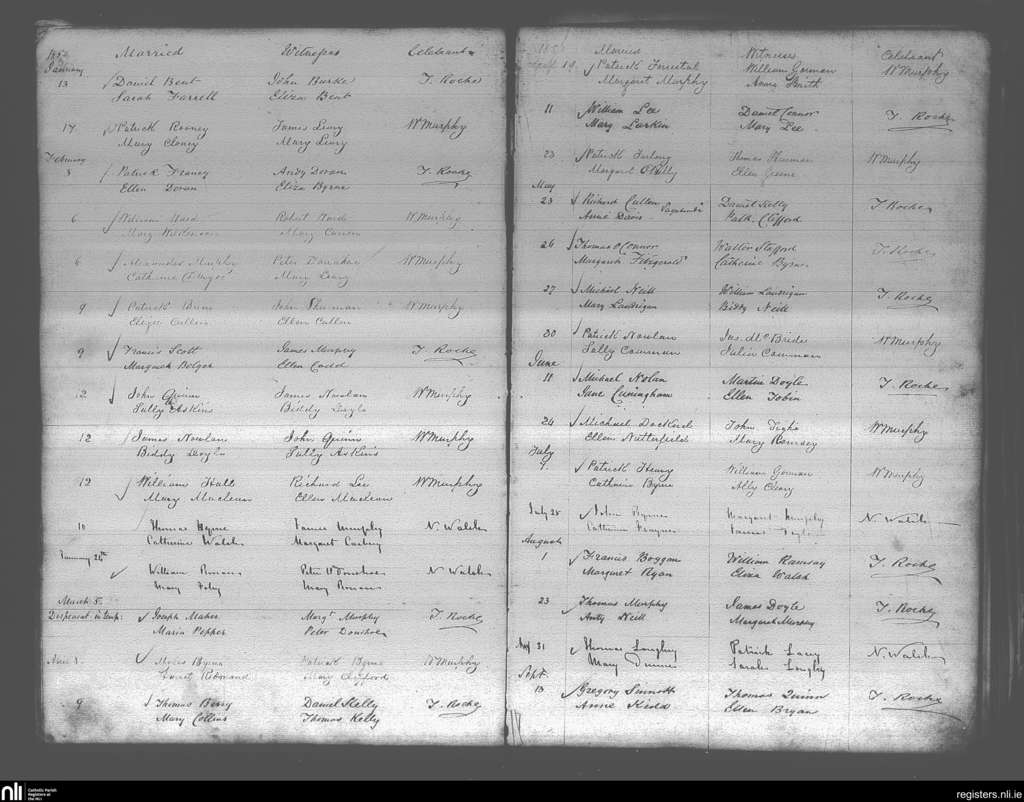 Married Witnesses Celebrant
January
13 Daniel Bent John Burke T. Roche
Sarah Farrell Eliza Bent
14 Patrick Rooney James Leary W Murphy
Mary Cloney Mary Leary
February
3 Patrick Franey Andy Doran T. Roche
Ellen Doran Eliza Byrne
6 William Ward Robert Ward W Murphy
Mary
6 Alexander Murphy Peter Donohoe W Murphy
Catherine Mary Leary
9 Patrick John W Murphy
Cullen Ellen Cullen
9 Francis Scott James Murphy T. Roche
Margaret Bolger Ellen Codd
12 John Quinn James Nowlan W Murphy
Sally Askins Biddy Doyle
12 James Nowlan John Quinn W Murphy
Biddy Doyle Sally Askins
12 William Hatts Richard Lee W Murphy
Mary Maclean Ellen Maclean
10 Thomas Byrne James Murphy N. Walsh
Catherine Walsh Margaret
January 24th
William Peter O'Donohoe N Walsh
Mary Foley Mary
March 5.
Joseph Maher Margt Murphy T. Roche
Maria Pepper Peter Donohoe
Moses Byrne Patrick Byrne W Murphy
Mary
9 Thomas Berry Daniel Kelly T. Roche
Mary Collins Thomas Kelly
Married Witness Celebrant
19. Patrick William Gorman W Murphy
Margaret Murphy Anne Smith
11 William Lee Daniel Connor T. Roche
Mary Larkin Mary Lee
23 Patrick Furlong W Murphy
Margaret Ellen Greene
May
23 Richard Cullen Daniel Kelly T Roche
Anne Davis Patk. Clifford
26 Thomas O Connor Walter Stafford T. Roche
Margaret Fitzgerald Catherine Byrne
27 Michael Neill William Landrigan T. Roche
Mary Landrigan Biddy Neill
30 Patrick Nowlan Jas. McBride W Murphy
Sally Julia
June
11 Michael Nolan Martin Doyle T. Roche
Jane Cuningham Ellen Tobin
24 Michael John Tighe W Murphy
Ellen Netterfield Mary Ramsey
July
9. Patrick Henry William Gorman W Murphy
Catherine Byrne Ally Cleary
July 28 John Byrne Margaret Murphy N. Walsh
Catherine James
August
1 Francis Boggan William Ramsay T. Roche
Margaret Ryan Eliza Walsh
23 Thomas Murphy James Doyle T. Roche
Anty Neill Margaret Murphy
31 Thomas Longley Patrick Lacey N. Walsh
Mary Sarah Longley
Sept.
13 Gregory Sinnott Thomas Quinn T. Roche
Anne Kidd Ellen Bryan
nli Catholic Parish Registers at the NLI
registers.nli.ie